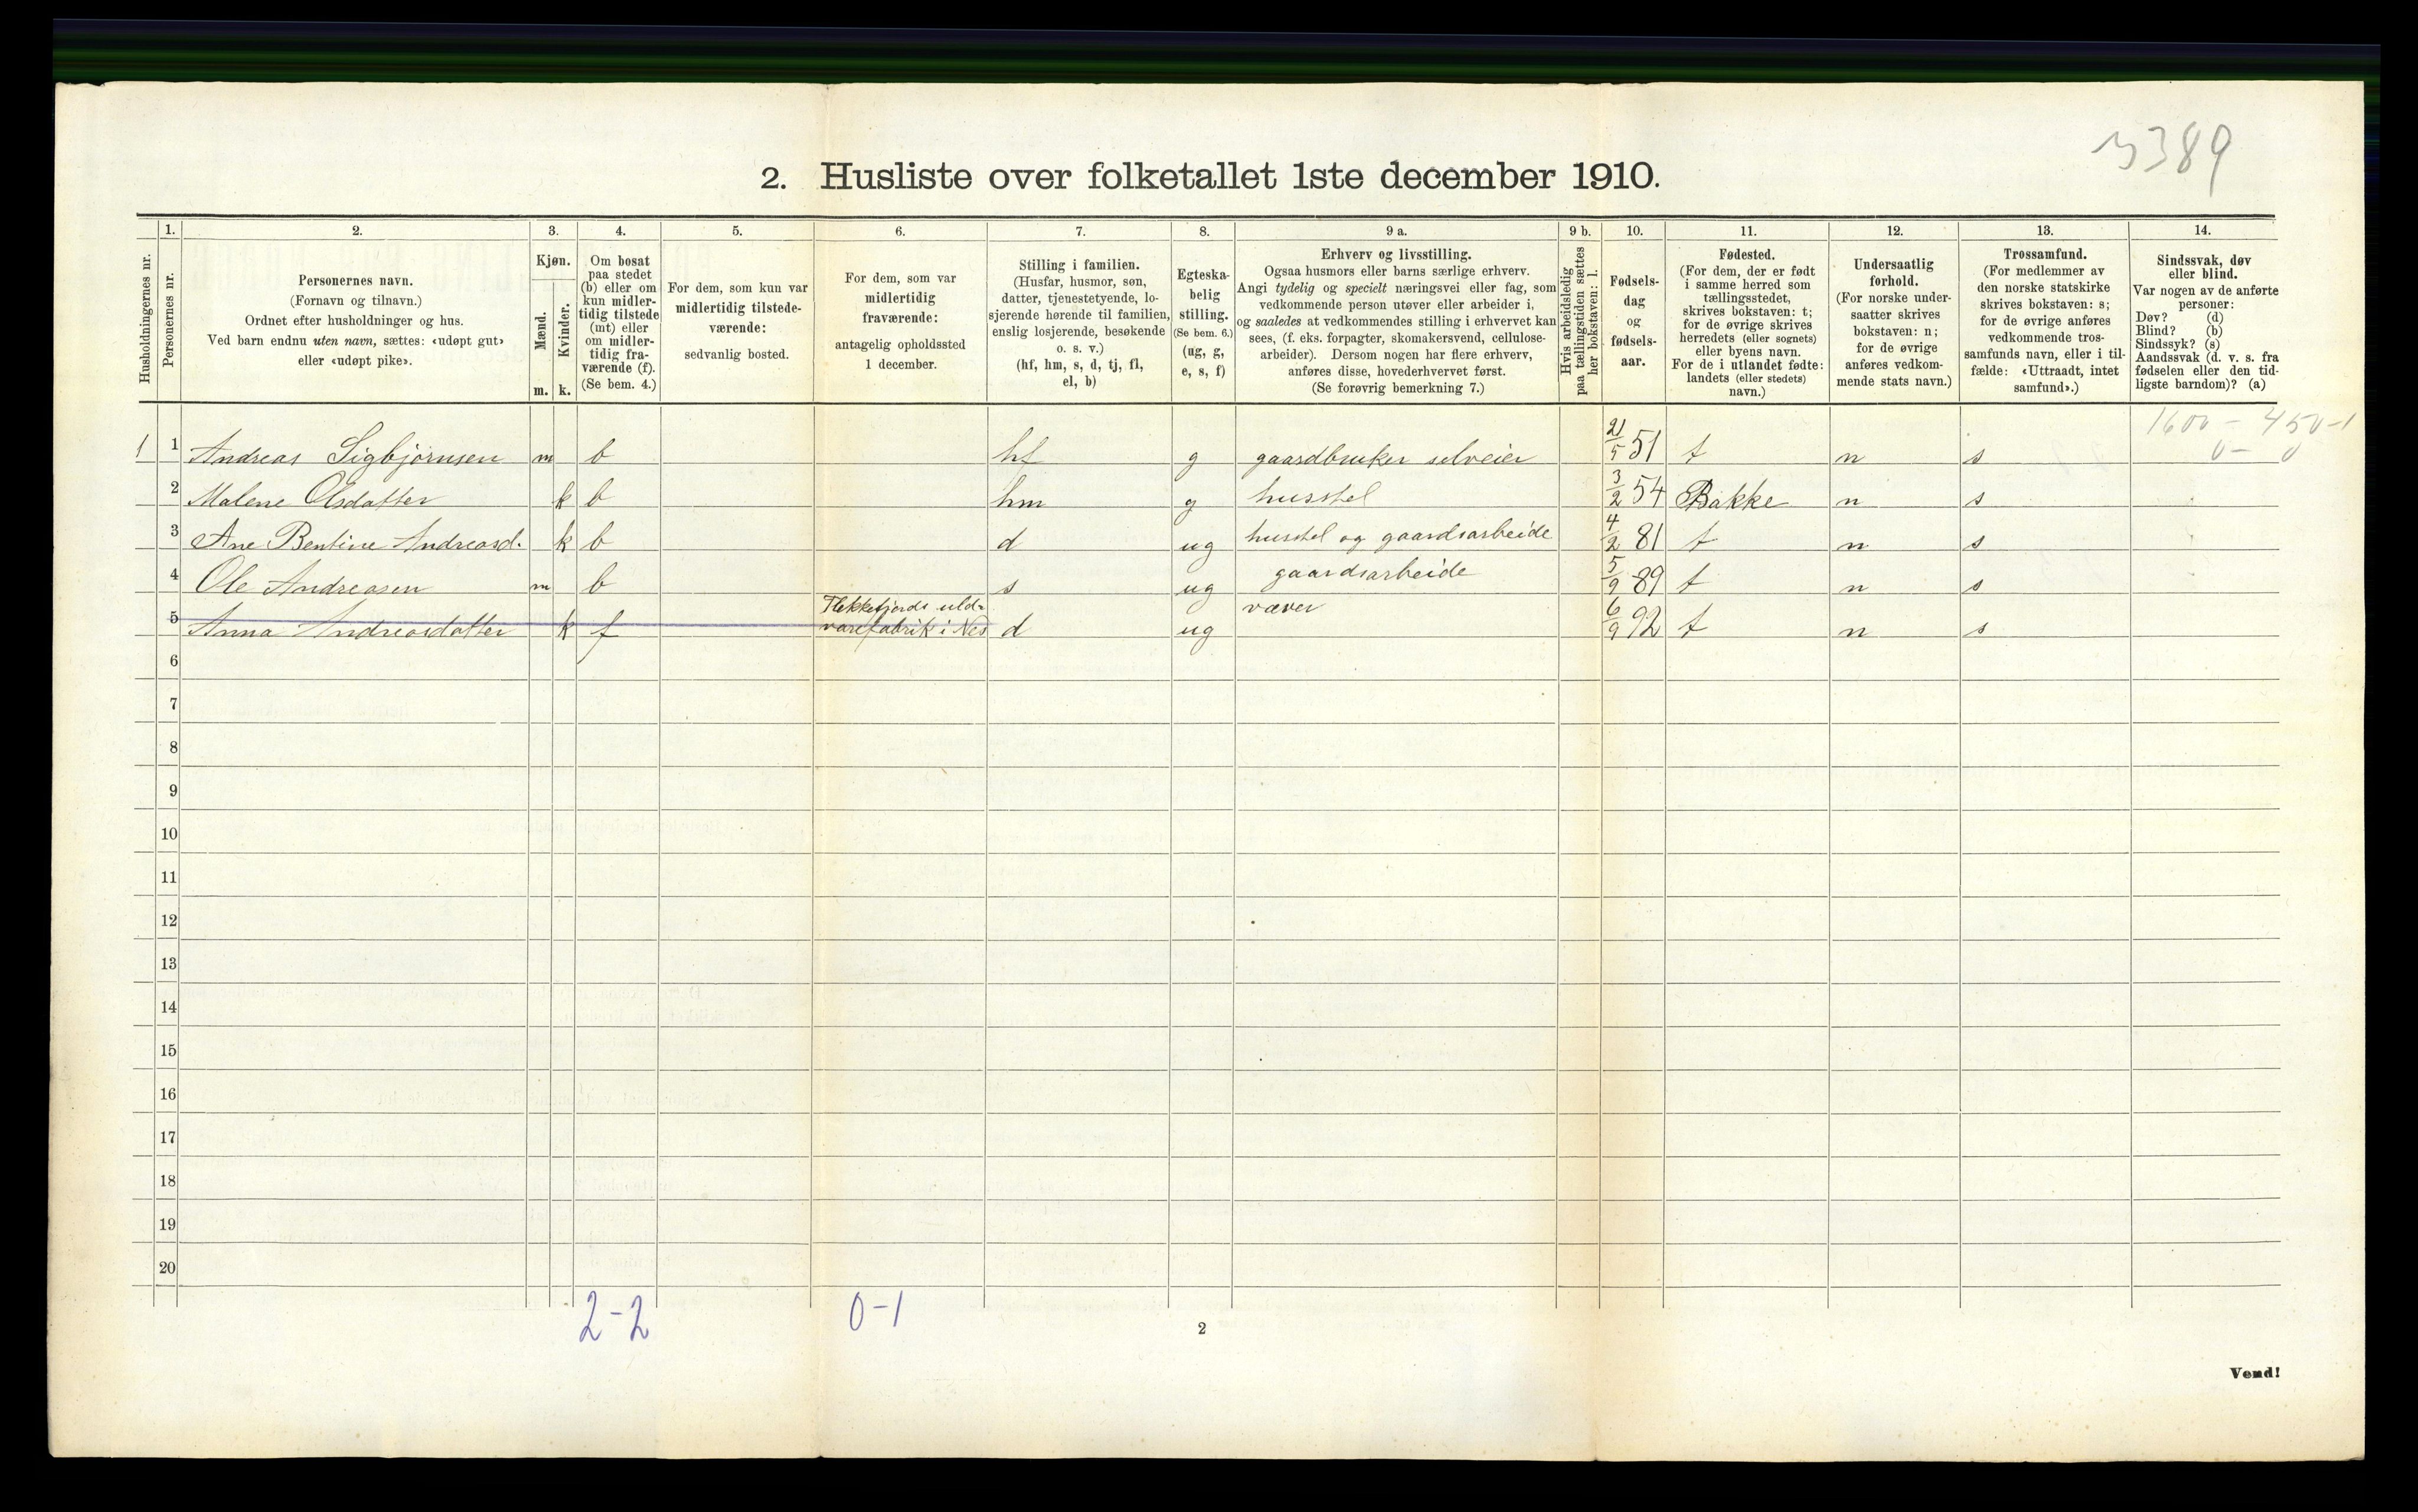 3389
2. Husliste over folketallet 1ste december 1910.
Husholdningernes nr.
1.
Personernes nr.
2.
Personernes navn.
(Fornavn og tilnavn.)
Ordnet efter husholdninger og hus.
Ved barn endnu uten navn, sættes: «udøpt gut»
eller «udøpt pike».
3.
Kjøn.
Mænd.
m.
Kvinder.
k.
4.
Om bosat
paa stedet
(b) eller om
kun midler-
tidig tilstede
(mt) eller
om midler-
tidig fra-
værende (f).
(Se bem. 4.)
5.
For dem, som kun var
midlertidig tilstede-
værende:
sedvanlig bosted.
6.
For dem, som var
midlertidig
fraværende:
antagelig opholdssted
1 december.
7.
Stilling i familien.
(Husfar, husmor, søn,
datter, tjenestetyende, lo-
sjerende hørende til familien,
enslig losjerende, besøkende
o. s. v.)
(hf, hm, s, d, tj, fl,
el, b)
8.
Egteska-
belig
stilling.
(Se bem. 6.)
(ug, g,
e, s, f)
9 a.
Erhverv og livsstilling.
Ogsaa husmors eller barns særlige erhverv.
Angi tydelig og specielt næringsvei eller fag, som
vedkommende person utøver eller arbeider i,
og saaledes at vedkommendes stilling i erhvervet kan
sees, (f. eks. forpagter, skomakersvend, cellulose-
arbeider). Dersom nogen har flere erhverv,
anføres disse, hovederhvervet først.
(Se forøvrig bemerkning 7.)
9 b.
Hvis arbeidsledig
paa tællingstiden sættes
her bokstaven: l.
10.
Fødsels-
dag
og
fødsels-
aar.
11.
Fødested.
(For dem, der er født
i samme herred som
tællingsstedet,
skrives bokstaven: t;
for de øvrige skrives
herredets (eller sognets)
eller byens navn.
For de i utlandet fødte:
landets (eller stedets)
navn.)
12.
Undersaatlig
forhold.
(For norske under-
saatter skrives
bokstaven: n;
for de øvrige
anføres vedkom-
mende stats navn.)
13.
Trossamfund.
(For medlemmer av
den norske statskirke
skrives bokstaven: s;
for de øvrige anføres
vedkommende tros-
samfunds navn, eller i til-
fælde: «Uttraadt, intet
samfund».)
14.
Sindssvak, døv
eller blind.
Var nogen av de anførte
personer:
Døv? (d)
Blind? (b)
Sindssyk? (s)
Aandssvak (d. v. s. fra
fødselen eller den tid-
ligste barndom)? (a)
1600 - 450-1
0 - 0
1 1 Andreas Sigbjørnsen m b hf g gaardbruker selveier 21/5 51 t n s
2 Malene Olsdatter k b hm g husstel 3/2 54 Bakke n s
3 Ane Bentine Andreasd. k b d ug husstel og gaardsarbeide 4/2 81 t n s
4 Ole Andreasen m b s ug gaardsarbeide 5/9 89 t n s
5 Anna Andreasdatter k f Flekkefjords uld-
varefabrik i Nes d ug væver 6/9 92 t n s
6
7
8
9
10
11
12
13
14
15
16
17
18
19
20
2-2 0-1
2
Vend!